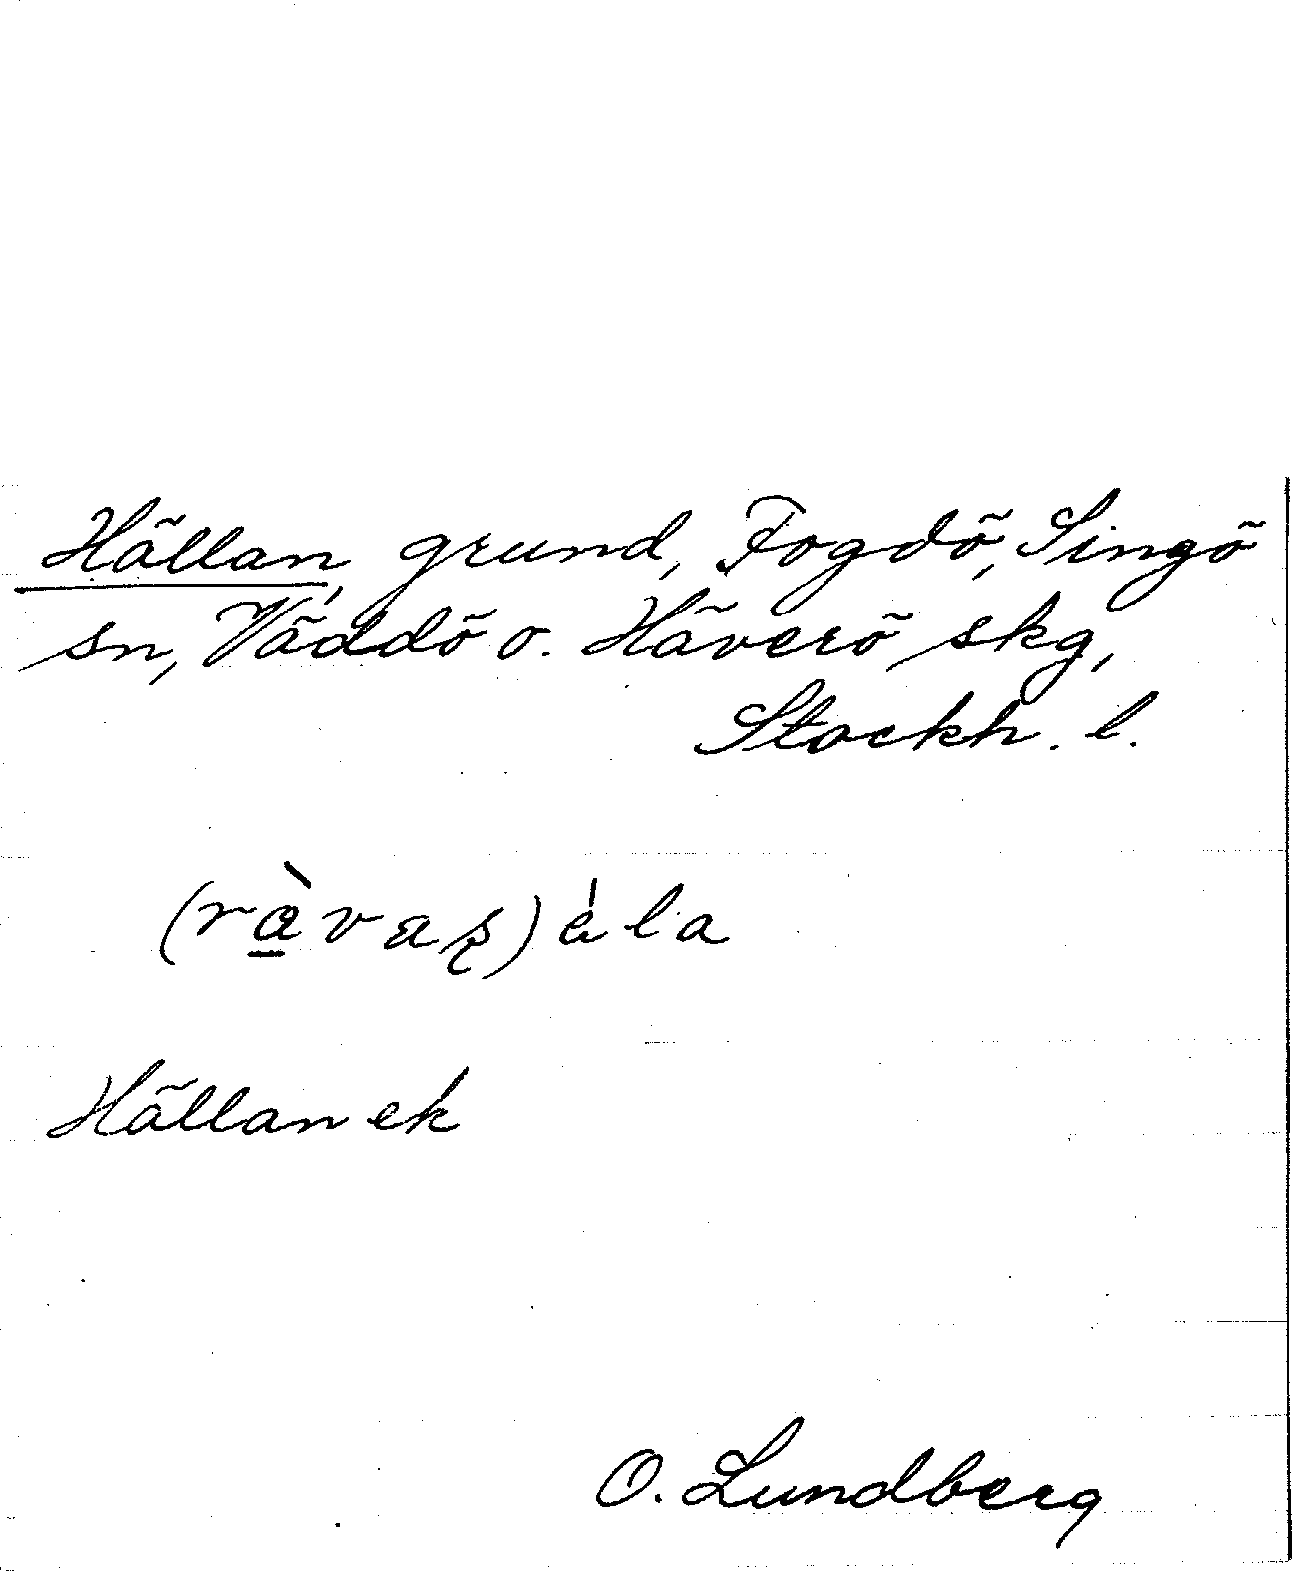 Hällan, grund, Fogdö, Singö
sn, Väddö o. Häverö skg,
Stockh. l.
(ràvaʂ) èla
Hällan ek
O. Lundberg